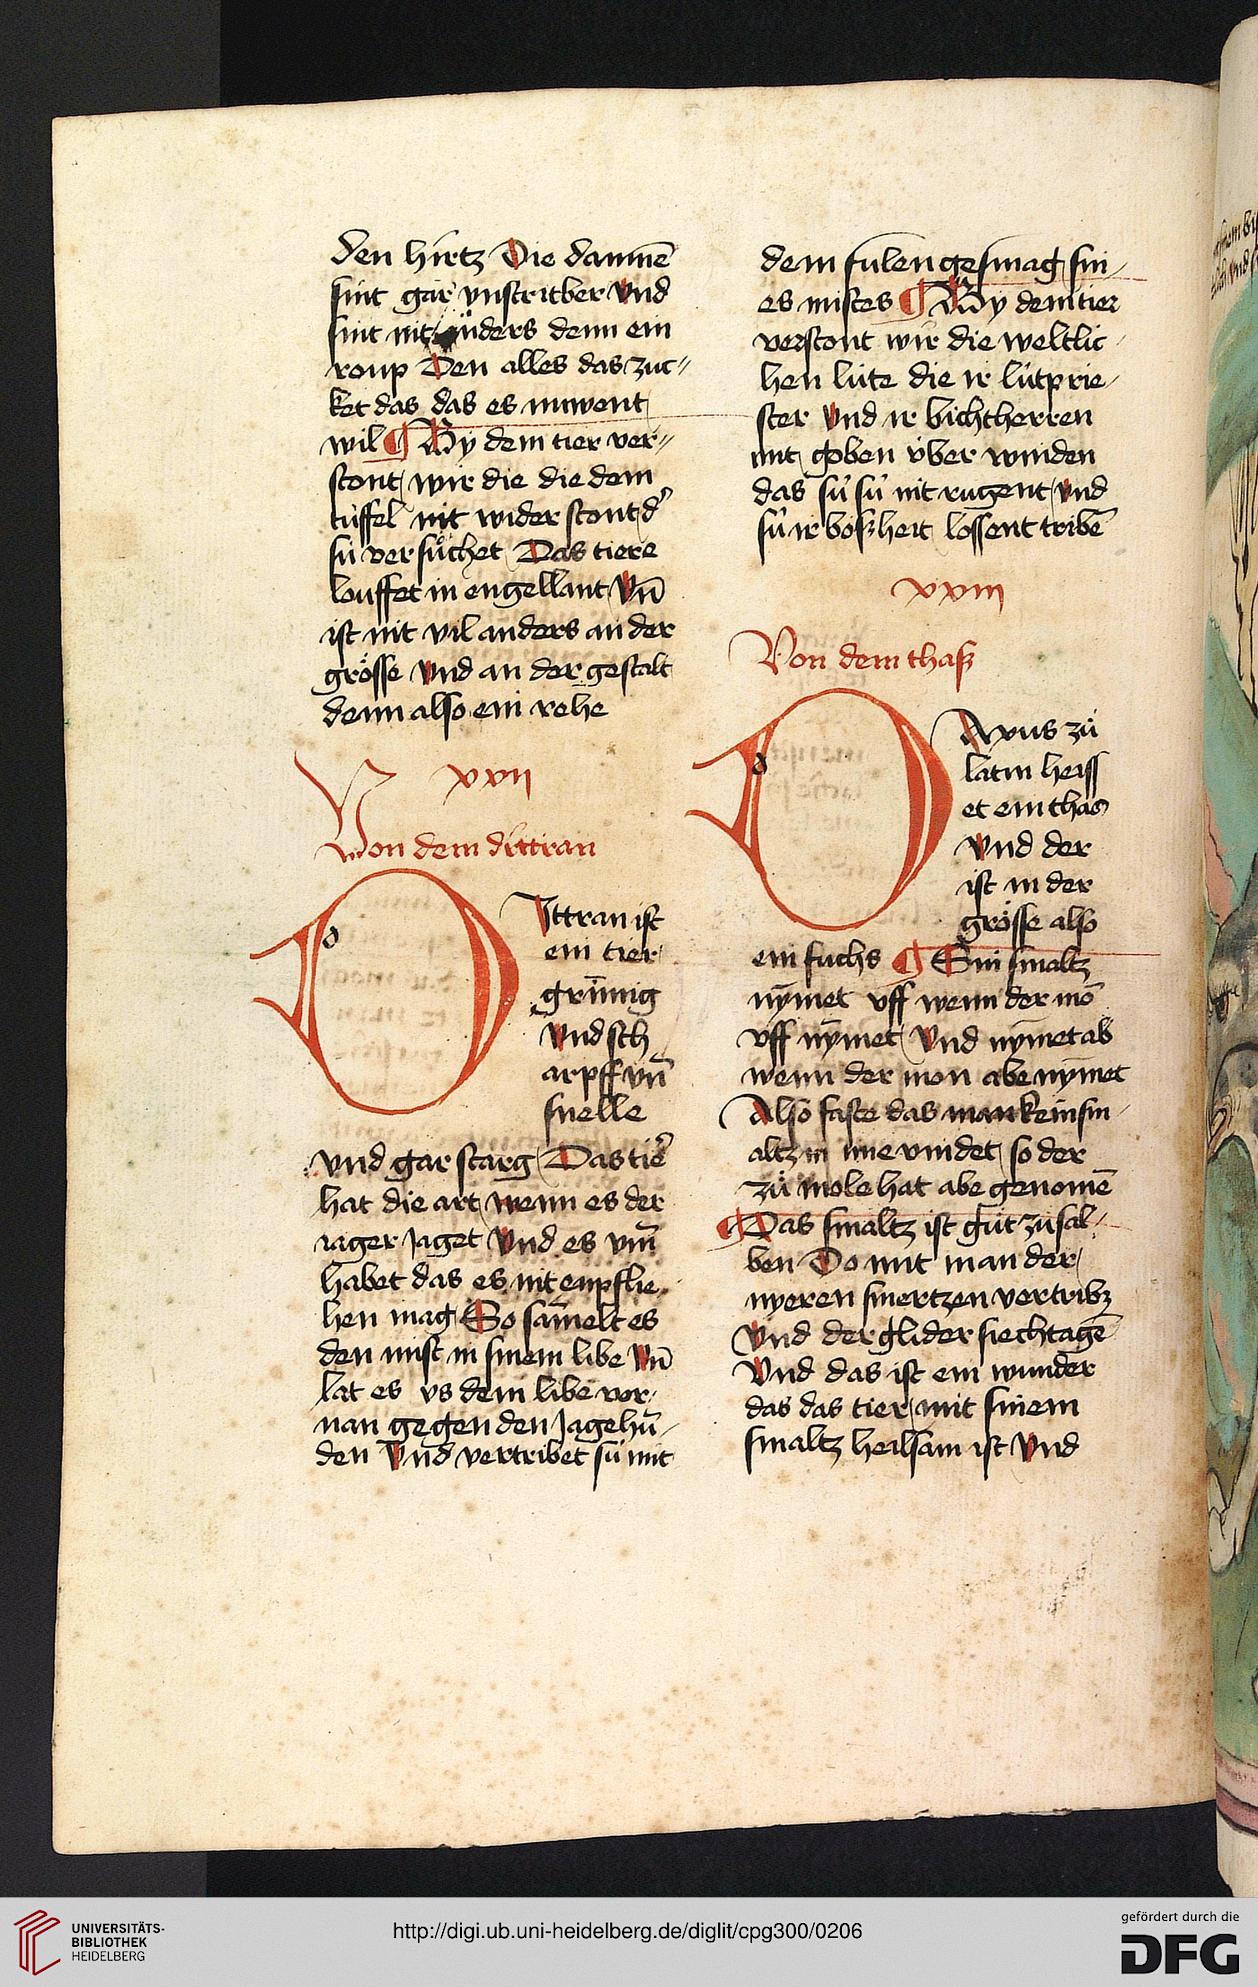 den hirtz Die dammē
sint gar vnstritber vnd
sint nit anders denn ein
roup Den alles das zuc-
ket das das es nuwent
wil ¶ By dem tier ver-
stont wir die die dem
tüffel nit wider stont d'
sú versůchet Das tiere
louffet in engellant Vn̄
ist nit vil anders an der
grösse vnd an der gestalt
denn also ein rehe
xxii
Von dem dittran
d
DIttran ist
ein tier
grym̄ig
vnd sch
arpff vn̄
snelle
vnd gar starg Das tier
hat die art wenn es der
iager Jaget Vnd es vmͫ
habet das es nit enpflie-
hen mag So sam̄elt es
den mist in sinem libe vn̄
lat es vs dem libe vor-
nan gegen den Jagehū-
den Vnd vertribet sú mit
dem fulen gesmag sin-
es mistes ¶ By dem tier
verstont wir die weltlic-
hen lúte die ir lútprie-
ster vnd ir bichtherren
mit goben v́ber winden
das sú sú nit rugent vnd
sú ir boßheit lossent tribē
xxiii
Von dem thaß
d
DAxus zů
latin heiss
et ein thas
vnd der
ist in der
grösse also
ein fuchs ¶ Sin smaltz
nym̄et vff wenn der mō
vff nym̄et Vnd nym̄et ab
wenn der mon abe nym̄et
Also faste das man kein sm-
altz in ime vindet so der
zů mole hat abe genomē
¶ Das smaltz ist gůt zů sal-
ben Do mit man der
nyeren smertzen vertribz
Vnd der glider siechtagē
Vnd das ist ein wunder
das das tier mit sinem
smaltz heilsam ist vnd
UNIVERSITÄTS-
BIBLIOTHEK
HEIDELBERG
http://digi.ub.uni-heidelberg.de/diglit/cpg300/0206
gefördert durch die
DFG